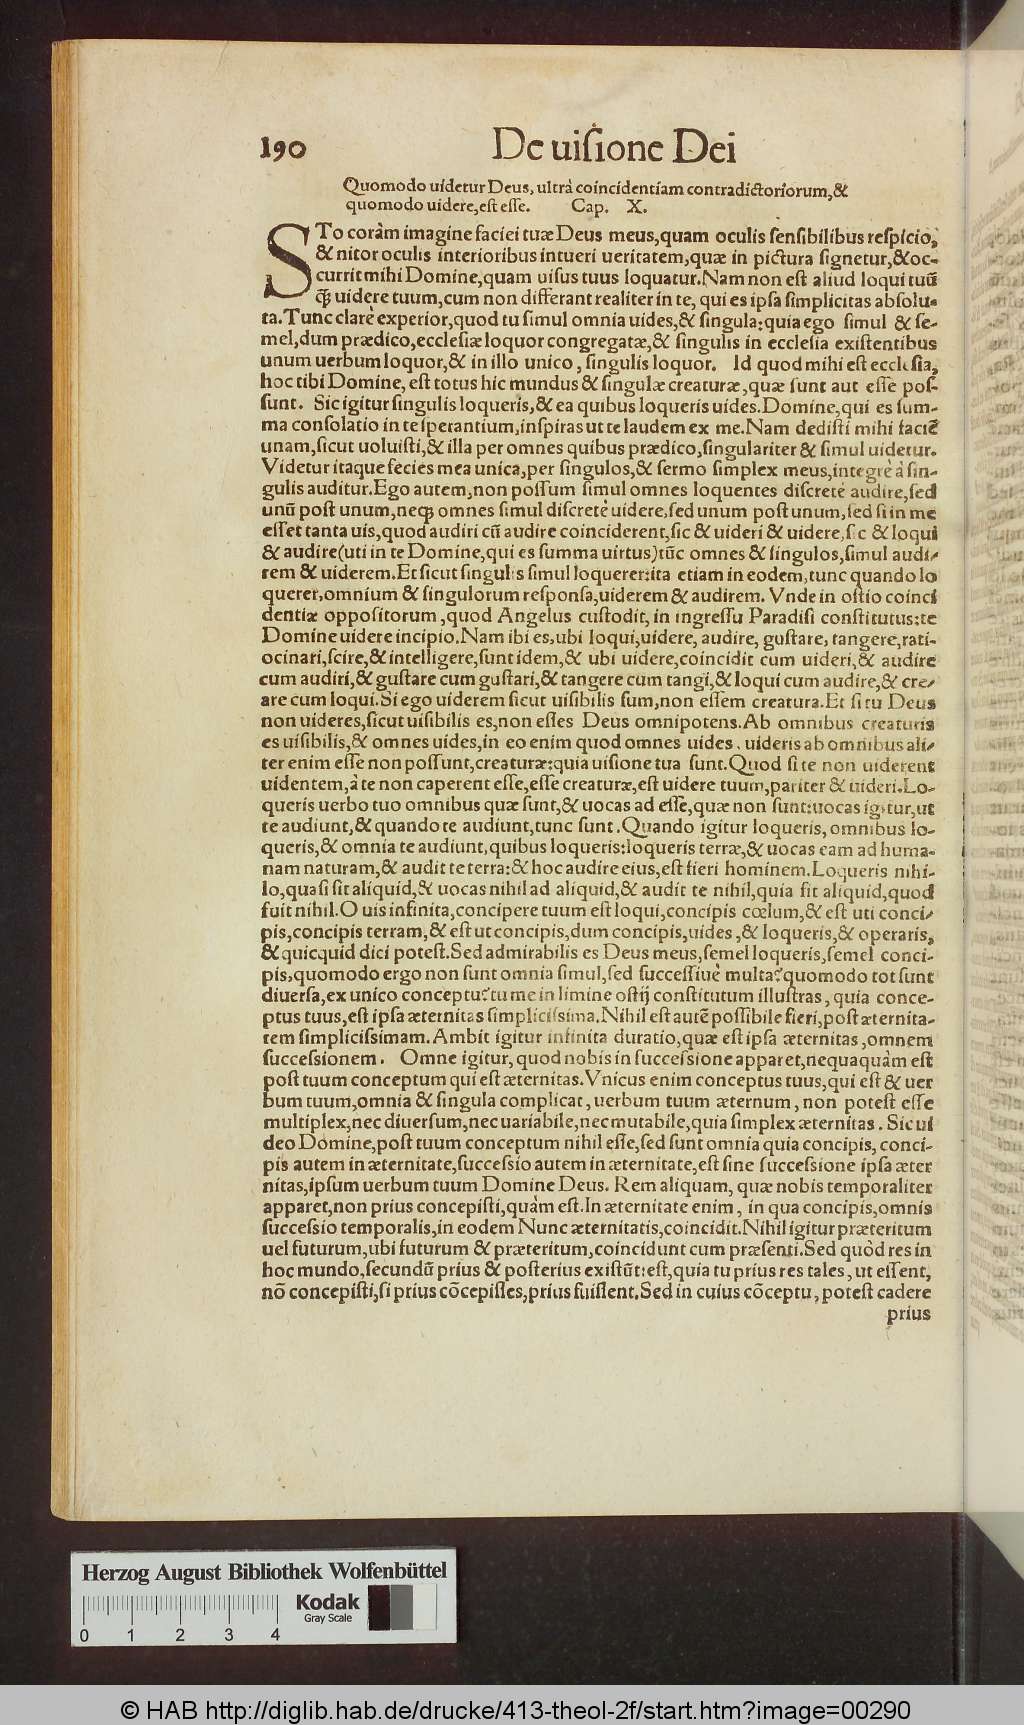 190 De uisione Dei
Quomodo uidetur Deus, ultrà coincidentiam contradictoriorum, &
quomodo uidere, est esse. Cap. X.
STo coràm imagine faciei tuæ Deus meus, quam oculis sensibilibus respicio,
& nitor oculis interioribus intueri ueritatem, quæ in pictura signetur, & oc-
currit mihi Domine, quam uisus tuus loquatur. Nam non est aliud loqui tuũ
q̃ uidere tuum, cum non differant realiter in te, qui es ipsa simplicitas absolu-
ta. Tunc clarè experior, quod tu simul omnia uides, & singula: quia ego simul & se-
mel, dum prædico, ecclesiæ loquor congregatæ, & singulis in ecclesia existentibus
unum uerbum loquor, & in illo unico, singulis loquor. Id quod mihi est ecclesia,
hoc tibi Domine, est totus hic mundus & singulæ creaturæ, quæ sunt aut esse pos-
sunt. Sic igitur singulis loqueris, & ea quibus loqueris uides. Domine, qui es sum-
ma consolatio in te sperantium, inspiras ut te laudem ex me. Nam dedisti mihi faciẽ
unam, sicut uoluisti, & illa per omnes quibus prædico, singulariter & simul uidetur.
Videtur itaque fecies mea unica, per singulos, & sermo simplex meus, integrè à sin-
gulis auditur. Ego autem, non possum simul omnes loquentes discretè audire, sed
unũ post unum, neq; omnes simul discretè uidere, sed unum post unum, sed si in me
esset tanta uis, quod audiri cũ audire coinciderent, sic & uideri & uidere, sic & loqui
& audire (uti in te Domine, qui es summa uirtus) tũc omnes & singulos, simul audi-
rem & uiderem. Et sicut singulis simul loquerer: ita etiam in eodem, tunc quando lo
querer, omnium & singulorum responsa, uiderem & audirem. Vnde in ostio coinci
dentiæ oppositorum, quod Angelus custodit, in ingressu Paradisi constitutus: te
Domine uidere incipio. Nam ibi es, ubi loqui, uidere, audire, gustare, tangere, rati-
ocinari, scire, & intelligere, sunt idem, & ubi uidere, coincidit cum uideri, & audire
cum audiri, & gustare cum gustari, & tangere cum tangi, & loqui cum audire, & cre-
are cum loqui. Si ego uiderem sicut uisibilis sum, non essem creatura. Et si tu Deus
non uideres, sicut uisibilis es, non esses Deus omnipotens. Ab omnibus creaturis
es uisibilis, & omnes uides, in eo enim quod omnes uides, uideris ab omnibus ali-
ter enim esse non possunt, creaturæ: quia uisione tua sunt. Quod si te non uiderent
uidentem, à te non caperent esse, esse creaturæ, est uidere tuum, pariter & uideri. Lo-
queris uerbo tuo omnibus quæ sunt, & uocas ad esse, quæ non sunt: uocas igitur, ut
te audiunt, & quando te audiunt, tunc sunt. Quando igitur loqueris, omnibus lo-
queris, & omnia te audiunt, quibus loqueris: loqueris terræ, & uocas eam ad huma-
nam naturam, & audit te terra: & hoc audire eius, est fieri hominem. Loqueris nihi-
lo, quasi sit aliquid, & uocas nihil ad aliquid, & audit te nihil, quia fit aliquid, quod
fuit nihil. O uis infinita, concipere tuum est loqui, concipis cœlum, & est uti conci-
pis, concipis terram, & est ut concipis, dum concipis, uides, & loqueris, & operaris,
& quicquid dici potest. Sed admirabilis es Deus meus, semel loqueris, semel conci-
pis, quomodo ergo non sunt omnia simul, sed successiuè multa? quomodo tot sunt
diuersa, ex unico conceptu? tu me in limine ostij constitutum illustras, quia conce-
ptus tuus, est ipsa æternitas simplicissima. Nihil est autẽ possibile fieri, post æternita-
tem simplicissimam. Ambit igitur infinita duratio, quæ est ipsa æternitas, omnem
successionem. Omne igitur, quod nobis in successione apparet, nequaquàm est
post tuum conceptum qui est æternitas. Vnicus enim conceptus tuus, qui est & uer
bum tuum, omnia & singula complicat, uerbum tuum æternum, non potest esse
multiplex, nec diuersum, nec uariabile, nec mutabile, quia simplex æternitas. Sic ui
deo Domine, post tuum conceptum nihil esse, sed sunt omnia quia concipis, conci-
pis autem in æternitate, successio autem in æternitate, est sine successione ipsa æter
nitas, ipsum uerbum tuum Domine Deus. Rem aliquam, quæ nobis temporaliter
apparet, non prius concepisti, quàm est. In æternitate enim, in qua concipis, omnis
successio temporalis, in eodem Nunc æternitatis, coincidit. Nihil igitur præteritum
uel futurum, ubi futurum & præteritum, coincidunt cum præsenti. Sed quòd res in
hoc mundo, secundũ prius & posterius existũt: est, quia tu prius res tales, ut essent,
nõ concepisti, si prius cõcepisses, prius fuissent. Sed in cuius cõceptu, potest cadere
prius
Herzog August Bibliothek Wolfenbüttel
Kodak
Gray Scale
0 1 2 3 4
© HAB http://diglib.hab.de/drucke/413-theol-2f/start.htm?image=00290